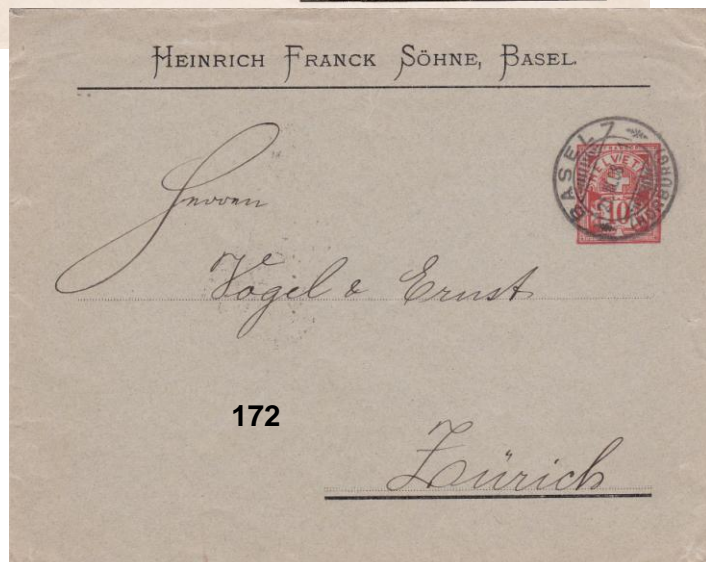 HEINRICH FRANCK SÖHNE, BASEL.
BASEL 7
HELVETIA
10
Herren
Vogel & Ernst
172
Zürich